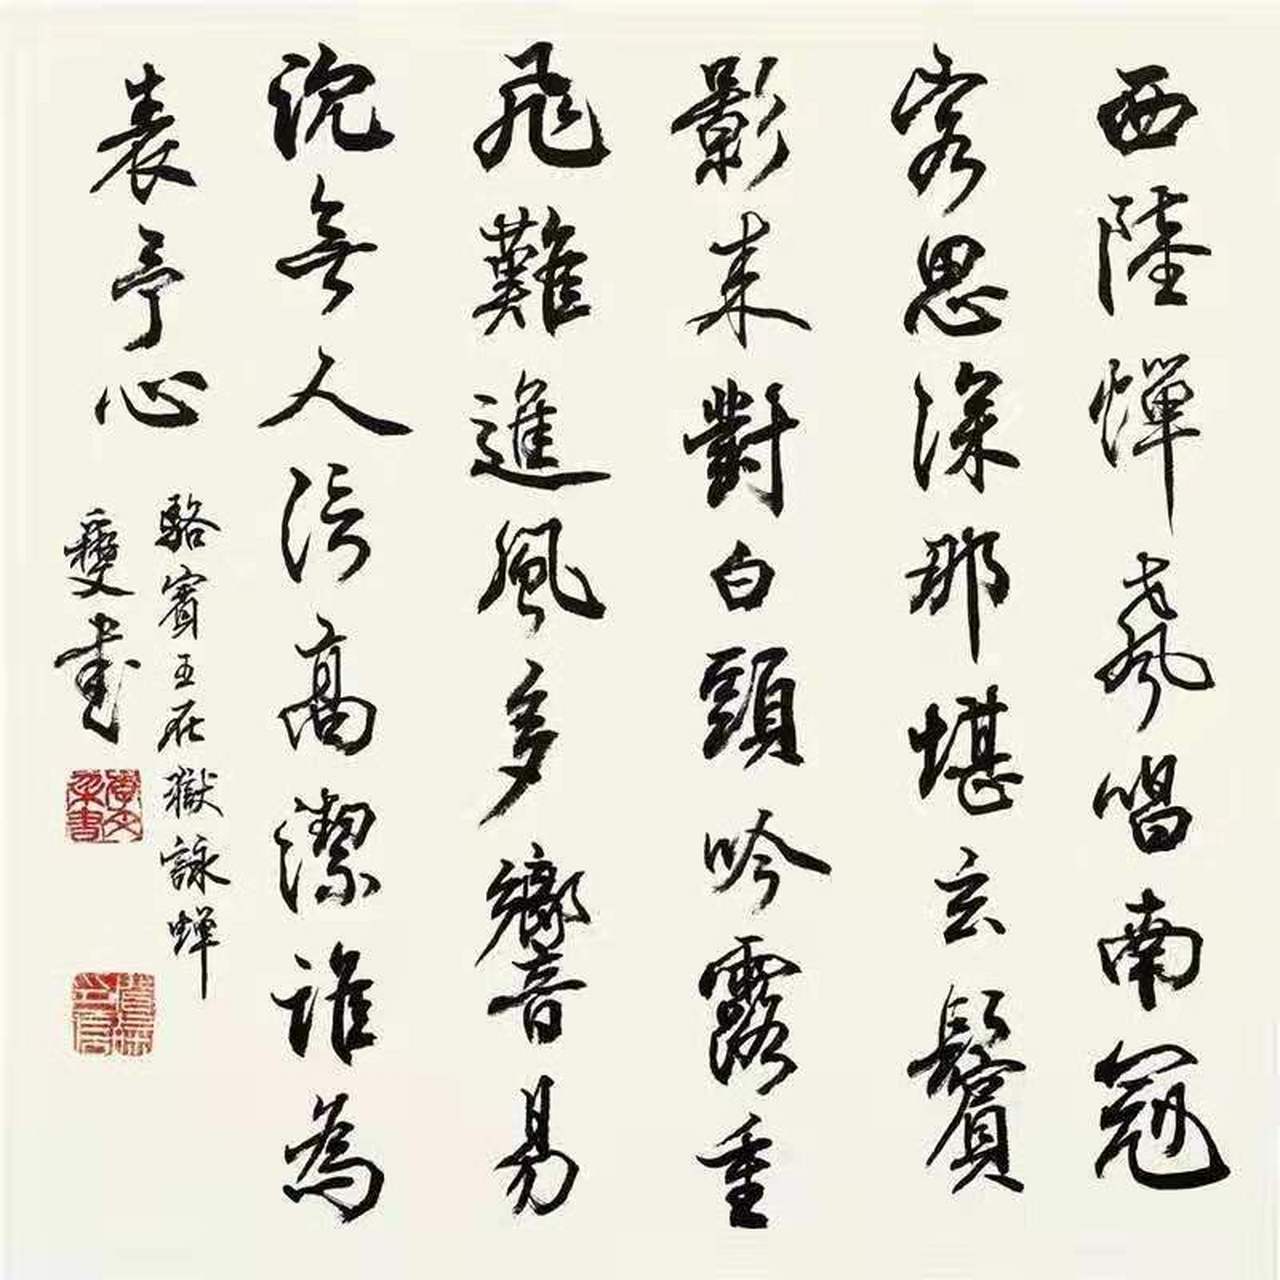 西陸蟬聲唱南冠
客思深那堪玄鬢
影來對白頭吟露重
飛難進風多響易
沈無人信高潔誰為
表予心
駱賓王在獄詠蟬
書